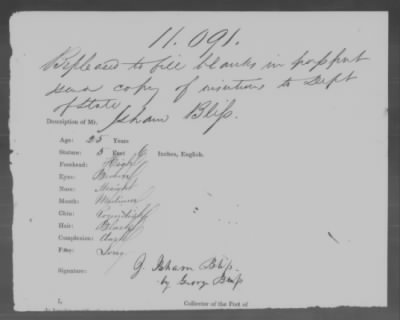 11.091.
Be pleased to fill blanks in passport
send copy of insertions to Dept
of State
Description of Mr. Isham Bliss.
Age: 25 Years
Stature: 5 Feet 6 Inches, English.
Forehead: High
Eyes: Brown
Nose: Straight
Mouth: Medium
Chin:
Hair: Black
Complexion: Dark
Face: Long
Signature: J. Isham Bliss.
by George Bliss
I, Collector of the Port of